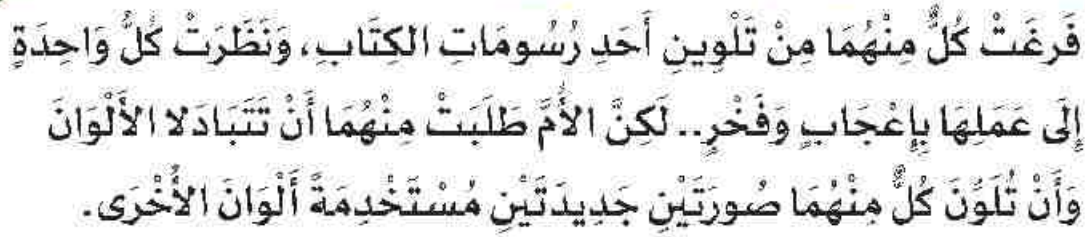 فَرِغَتْ كُلٌّ مِنْهُمَا مِنْ تَلْوِينِ أَحَدِ رُسُومَاتِ الكِتَابِ، وَنَظَرَتْ كُلُّ وَاحِدَةٍ
إِلَى عَمَلِهَا بِإِعْجَابٍ وَفَخْرٍ.. لَكِنَّ الأُمَّ طَلَبَتْ مِنْهُمَا أَنْ تَتَبَادَلا الأَلْوَانَ
وَأَنْ تُلَوِّنَ كُلٌّ مِنْهُمَا صُورَتَيْنِ جَدِيدَتَيْنِ مُسْتَخْدِمَةً أَلْوَانَ الأُخْرَى.